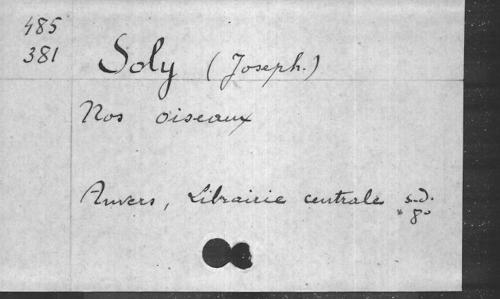 485
381
Soly (Joseph.)
Nos oiseaux
Anvers, Librairie centrale s.d.
8°